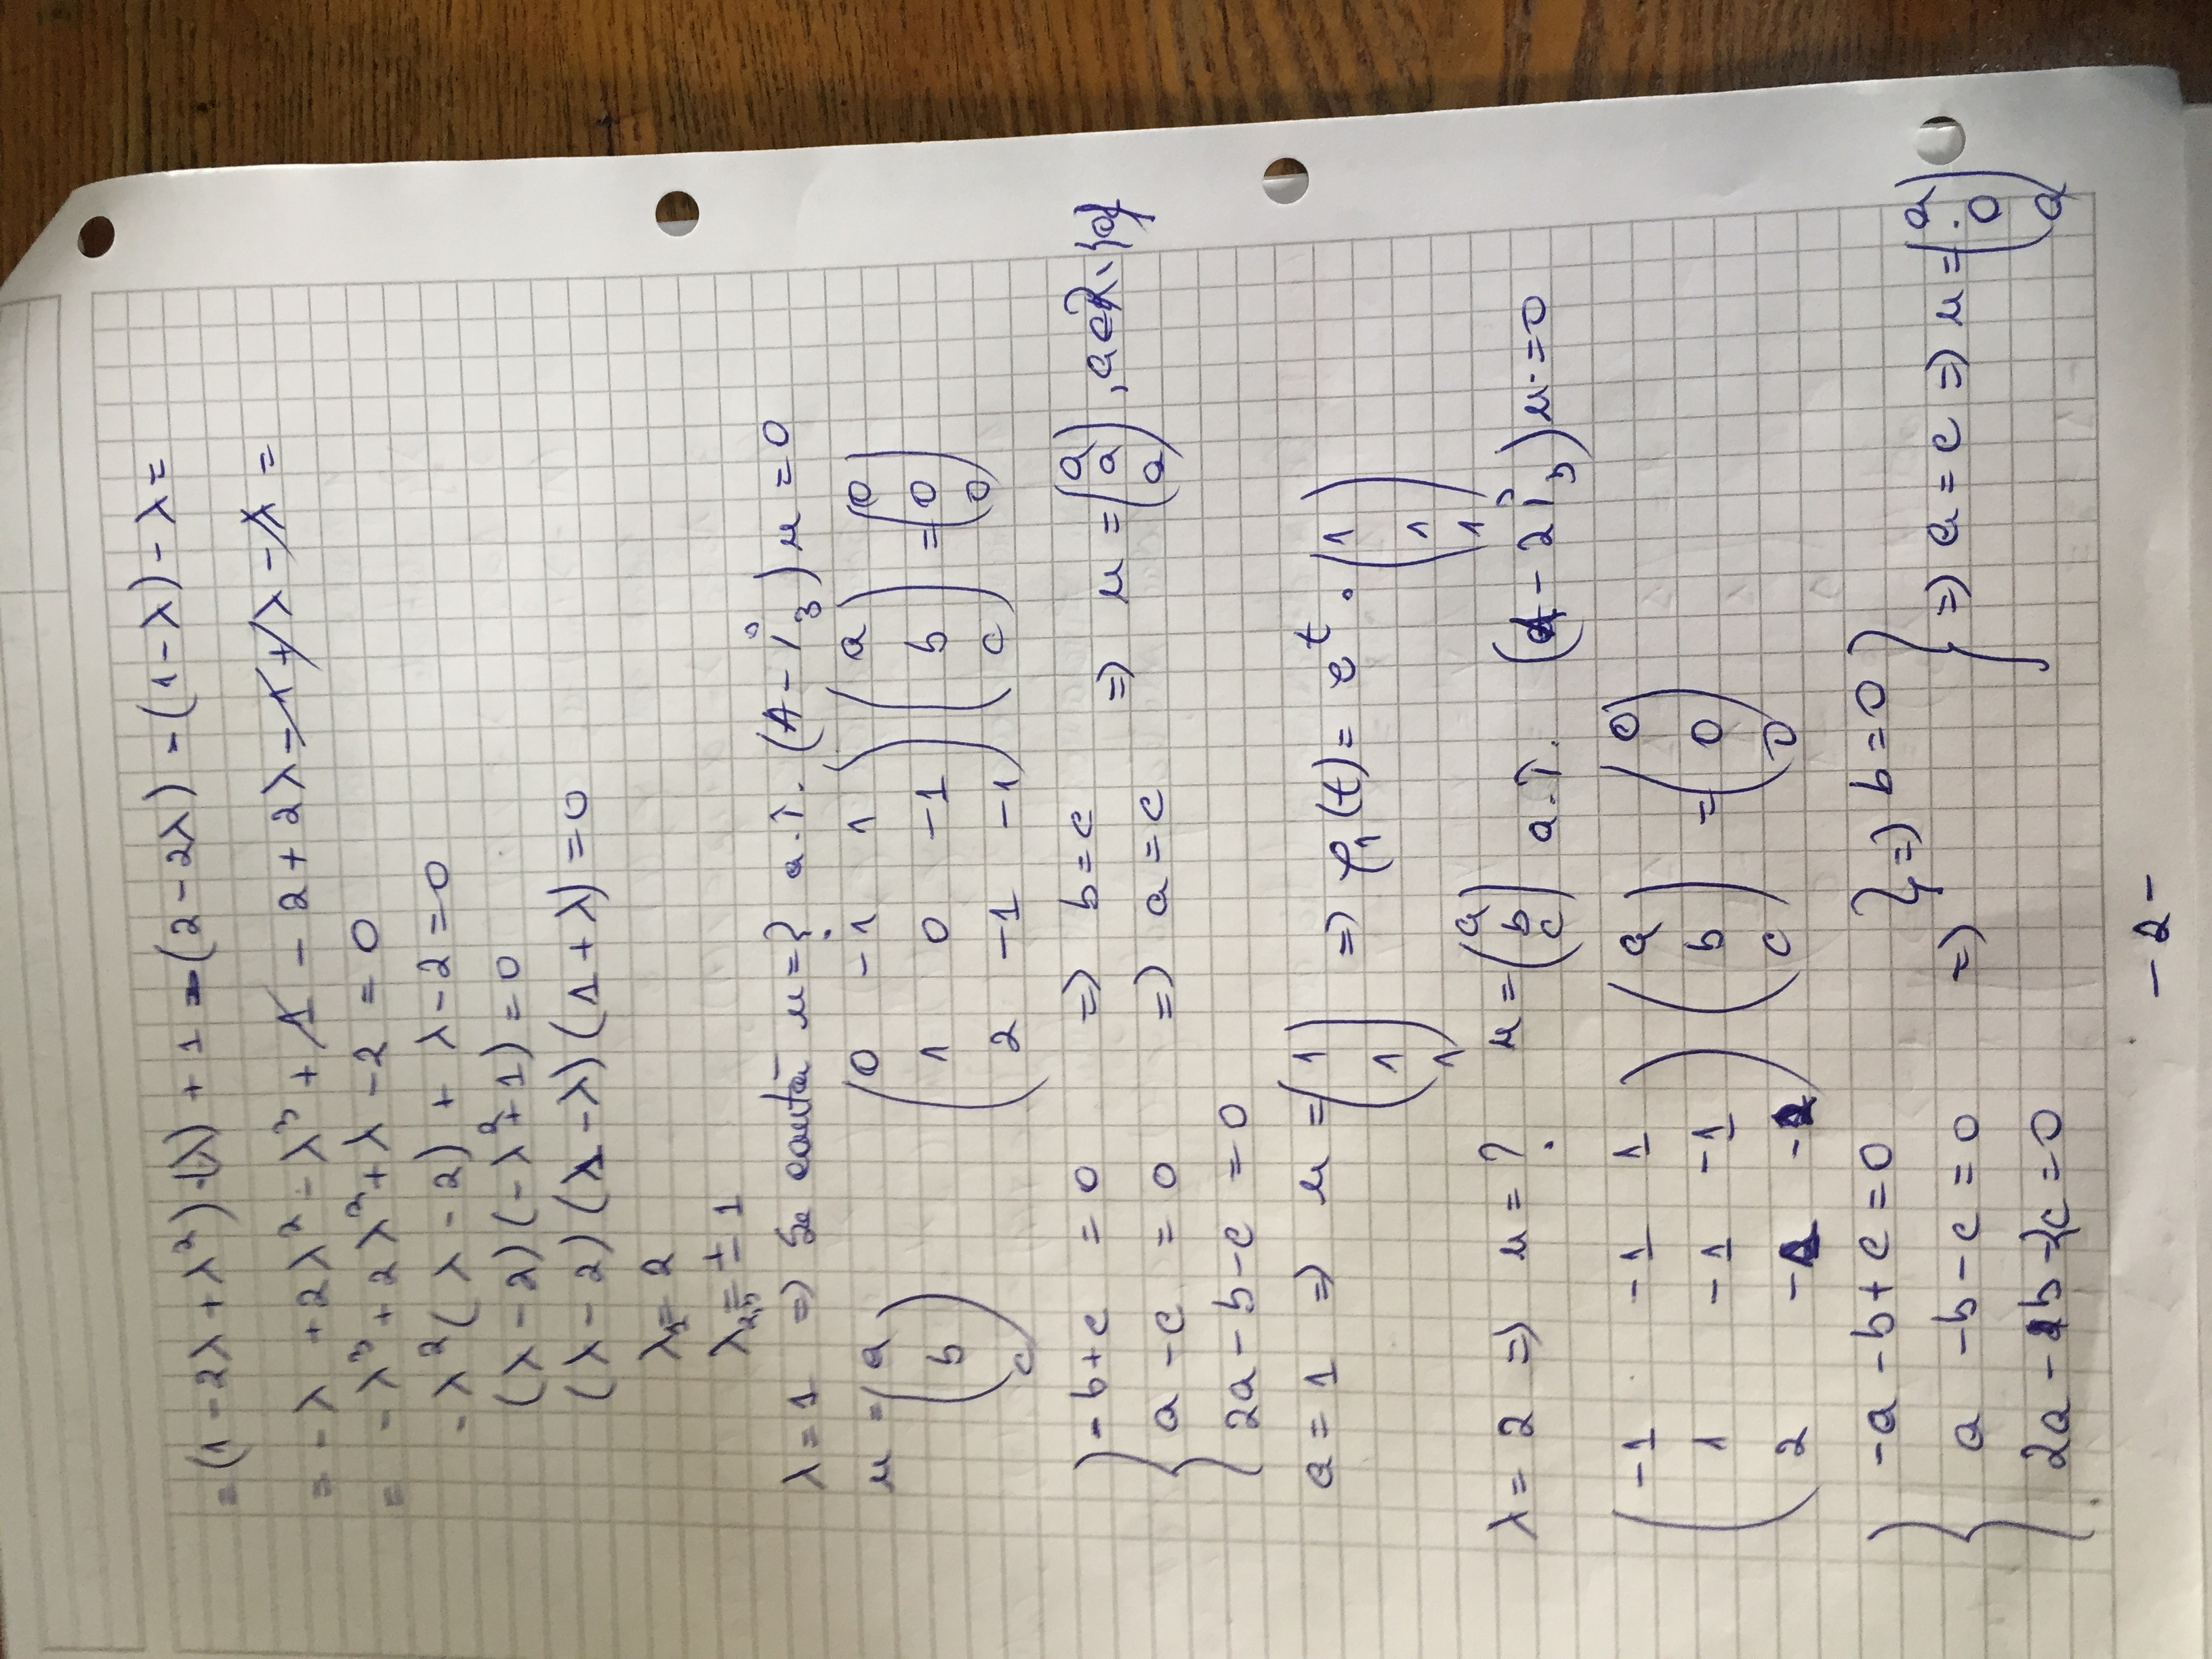 = (1 - 2λ + λ²)·(-λ) + 1 - (2 - 2λ) - (1 - λ) - λ =
= -λ + 2λ² - λ³ + 1 - 2 + 2λ - 1 + λ - λ =
= -λ³ + 2λ² + λ - 2 = 0
-λ²(λ - 2) + λ - 2 = 0
(λ - 2)(-λ² + 1) = 0
(λ - 2)(1 - λ)(1 + λ) = 0
λ₁ = 2
λ₂,₃ = ± 1
λ = 1 => Se caută u = ? a.î. (A - I₃)u = 0
u = (a b c) (0 -1 1 ; 1 0 -1 ; 2 -1 -1) (a b c) = (0 0 0)
{ -b + c = 0 => b = c
a - c = 0 => a = c => u = (a a a), a ∈ R \ {0}
2a - b - c = 0
a = 1 => u = (1 1 1) => φ₁(t) = e^t · (1 1 1)
λ = 2 => u = ? u = (a b c) a.î. (A - 2I₃)u = 0
(-1 -1 1 ; 1 -1 -1 ; 2 -1 -2) (a b c) = (0 0 0)
{ -a - b + c = 0 } => b = 0
a - b - c = 0 => } => a = c => u = (a 0 a)
2a - b - 2c = 0
- 2 -